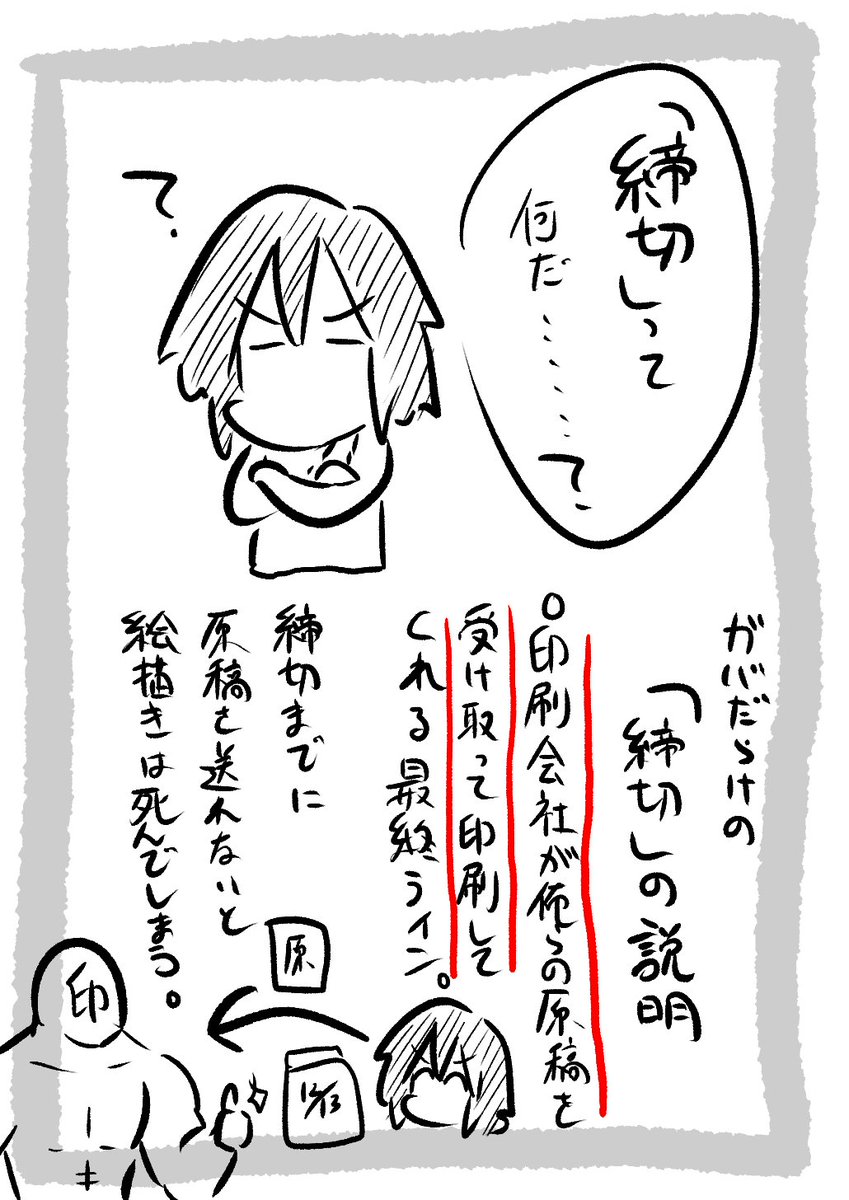 「締切」って
何だ……って。
?
ガバだらけの
「締切」の説明
○印刷会社が俺らの原稿を
受け取って印刷して
くれる最終ライン。
締切までに
原稿を送れないと
絵描きは死んでしまう。
原
印
12/13